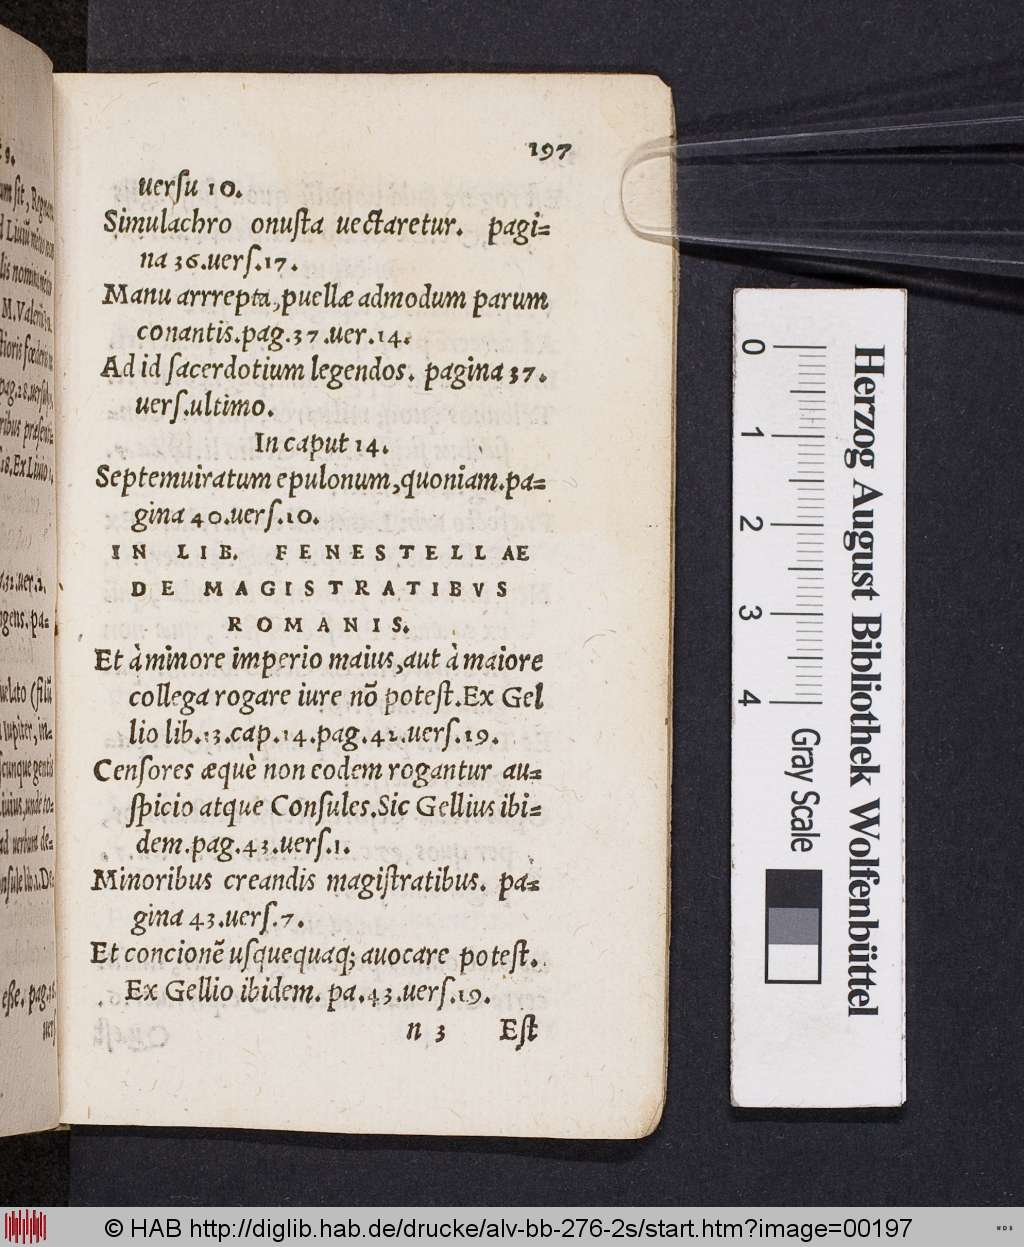 197
uerſu 10.
Simulachro onuſta uectaretur. pagi=
na 36.uerſ.17.
Manu arrrepta,puellæ admodum parum
conantis.pag.37.uer.14.
Ad id ſacerdotium legendos. pagina 37.
uerſ.ultimo.
In caput 14.
Septemuiratum epulonum,quoniam.pa=
gina 40.uerſ.10.
IN LIB. FENESTELLAE
DE MAGISTRATIBVS
ROMANIS.
Et à minore imperio maius,aut à maiore
collega rogare iure nõ poteſt.Ex Gel
lio lib.13.cap.14.pag.42.uerſ.19.
Cenſores æquè non eodem rogantur au=
ſpicio atque Conſules.Sic Gellius ibi=
dem.pag.43.uerſ.1.
Minoribus creandis magiſtratibus. pa=
gina 43.uerſ.7.
Et concionẽ uſquequaq; auocare poteſt.
Ex Gellio ibidem. pa.43.uerſ.19.
n 3 Eſt
0 1 2 3 4 Gray Scale
Herzog August Bibliothek Wolfenbüttel
© HAB http://diglib.hab.de/drucke/alv-bb-276-2s/start.htm?image=00197